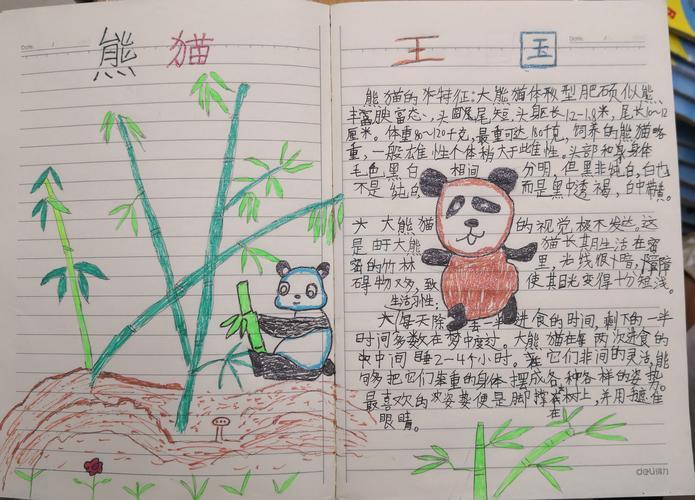 熊 猫 王 国
Date. / Date. /
熊猫的特征:大熊猫体型肥硕似熊、
丰腴富态、头圆尾短,头躯长1.2-1.8米,尾长10~12
厘米。体重80~120千克,最重可达180千克,饲养的熊猫略
重,一般雄性个体稍大于此雌性。头部和身体
毛色黑白相间分明,但黑非纯黑,白也
不是纯白,而是黑中透褐,白中带黄。
大熊猫的视觉极不发达。这
是由于大熊猫长其月生活在密
密的竹林里,光线很暗,障
碍物又多,致使其目光变得十分短浅。
生活习性:
每天除去一半进食的时间,剩下的一半
时间多数在梦中度过。大熊猫在每两次进食的
中间睡2-4个小时。它们非同的灵活,能
够多把它们笨重的身体摆成各种各样的姿势。
最喜欢的姿势便是脚撑在树上,并用遮住
眼睛。
deli得力